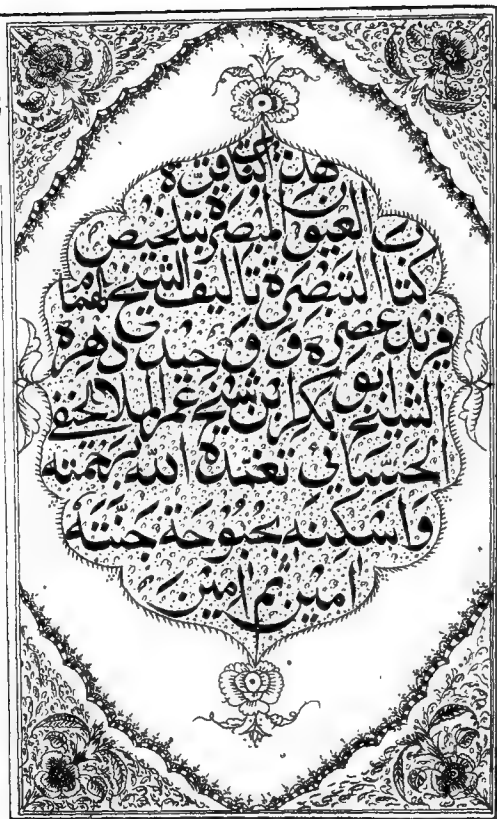 هذا كتاب قرّة
العيون المبصرة بتلخيص
كتاب التبصرة تاليف الشيخ الهمام
فريد عصره ووحيد دهره
الشيخ ابو بكر ابن شيخ عمر الملا الحنفي
الحسائي تغمده الله برحمته
واسكنه بحبوحة جنّته
امين ثم امين